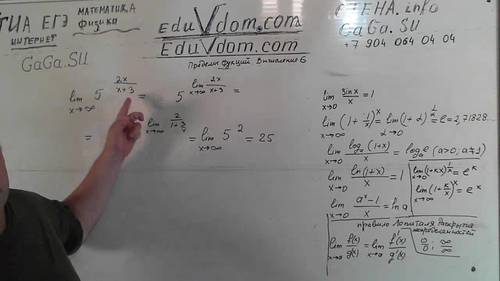 ГИА ЕГЭ
МАТЕМАТИКА
физика
ИНТЕРНЕТ
GaGa.SU
EduVdom.com
EduVdom.com
Пределы функций Вычисление 6
ГЕНА.info
GaGa.SU
+7 904 064 04 04
lim x→∞ 5^(2x/(x+3)) = 5^(lim x→∞ 2x/(x+3)) =
= lim x→∞ 2/(1+3/ = lim x→∞ 5^2 = 25
lim x→0 sinx/x = 1
lim x→∞ (1+1/x)^x = lim α→0 (1+α)^(1/α) = e = 2,71828...
lim x→0 log_a(1+x)/x = log_a e (a>0; a≠1)
lim x→0 ln(1+x)/x = 1
lim x→0 (1+kx)^(1/x) = e^k
lim x→∞ (1+k/x)^x = e^k
lim x→0 (a^x-1)/x = ln a
правило Лопиталя Раскрытие неопределенностей
lim x→a f(x)/g(x) = lim x→a f'(x)/g'(x)
0/0; ∞/∞